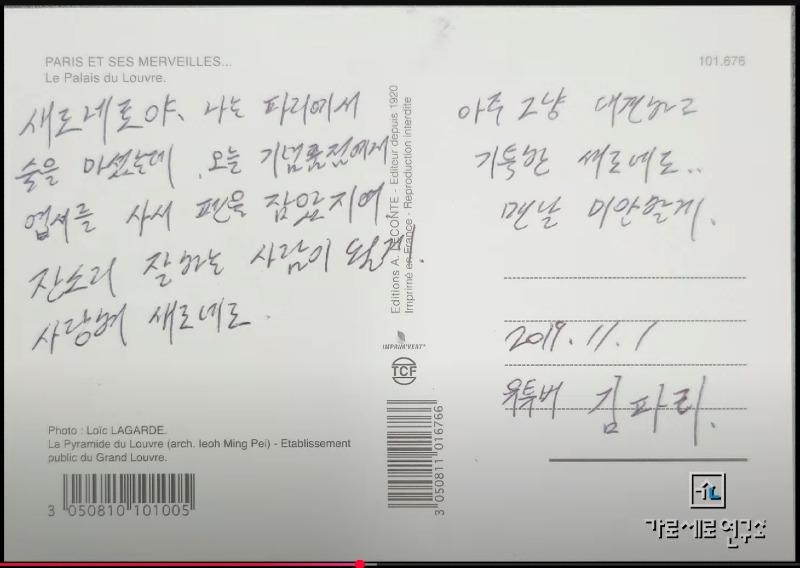 PARIS ET SES MERVEILLES...
Le Palais du Louvre.
101.676
새로네로야, 나는 파리에서
술을 마셨는데 . 오늘 기념품점에게
엽서를 사서 펜을 잡았지여
잔소리 잘하는 사람이 될게!
사랑해 새로네로.
Photo : Loïc LAGARDE.
La Pyramide du Louvre (arch. Ieoh Ming Pei) - Etablissement
public du Grand Louvre.
3 050810 101005
Editions A. LECONTE - Editeur depuis 1920
Imprimé en France - Reproduction interdite
IMPRIM'VERT®
TCF
3 050811 016766
아주 그냥 대견하고
기특한 새로네로..
맨날 미안할게.
2019.11.1
유튜버 김파리.
가로세로연구소